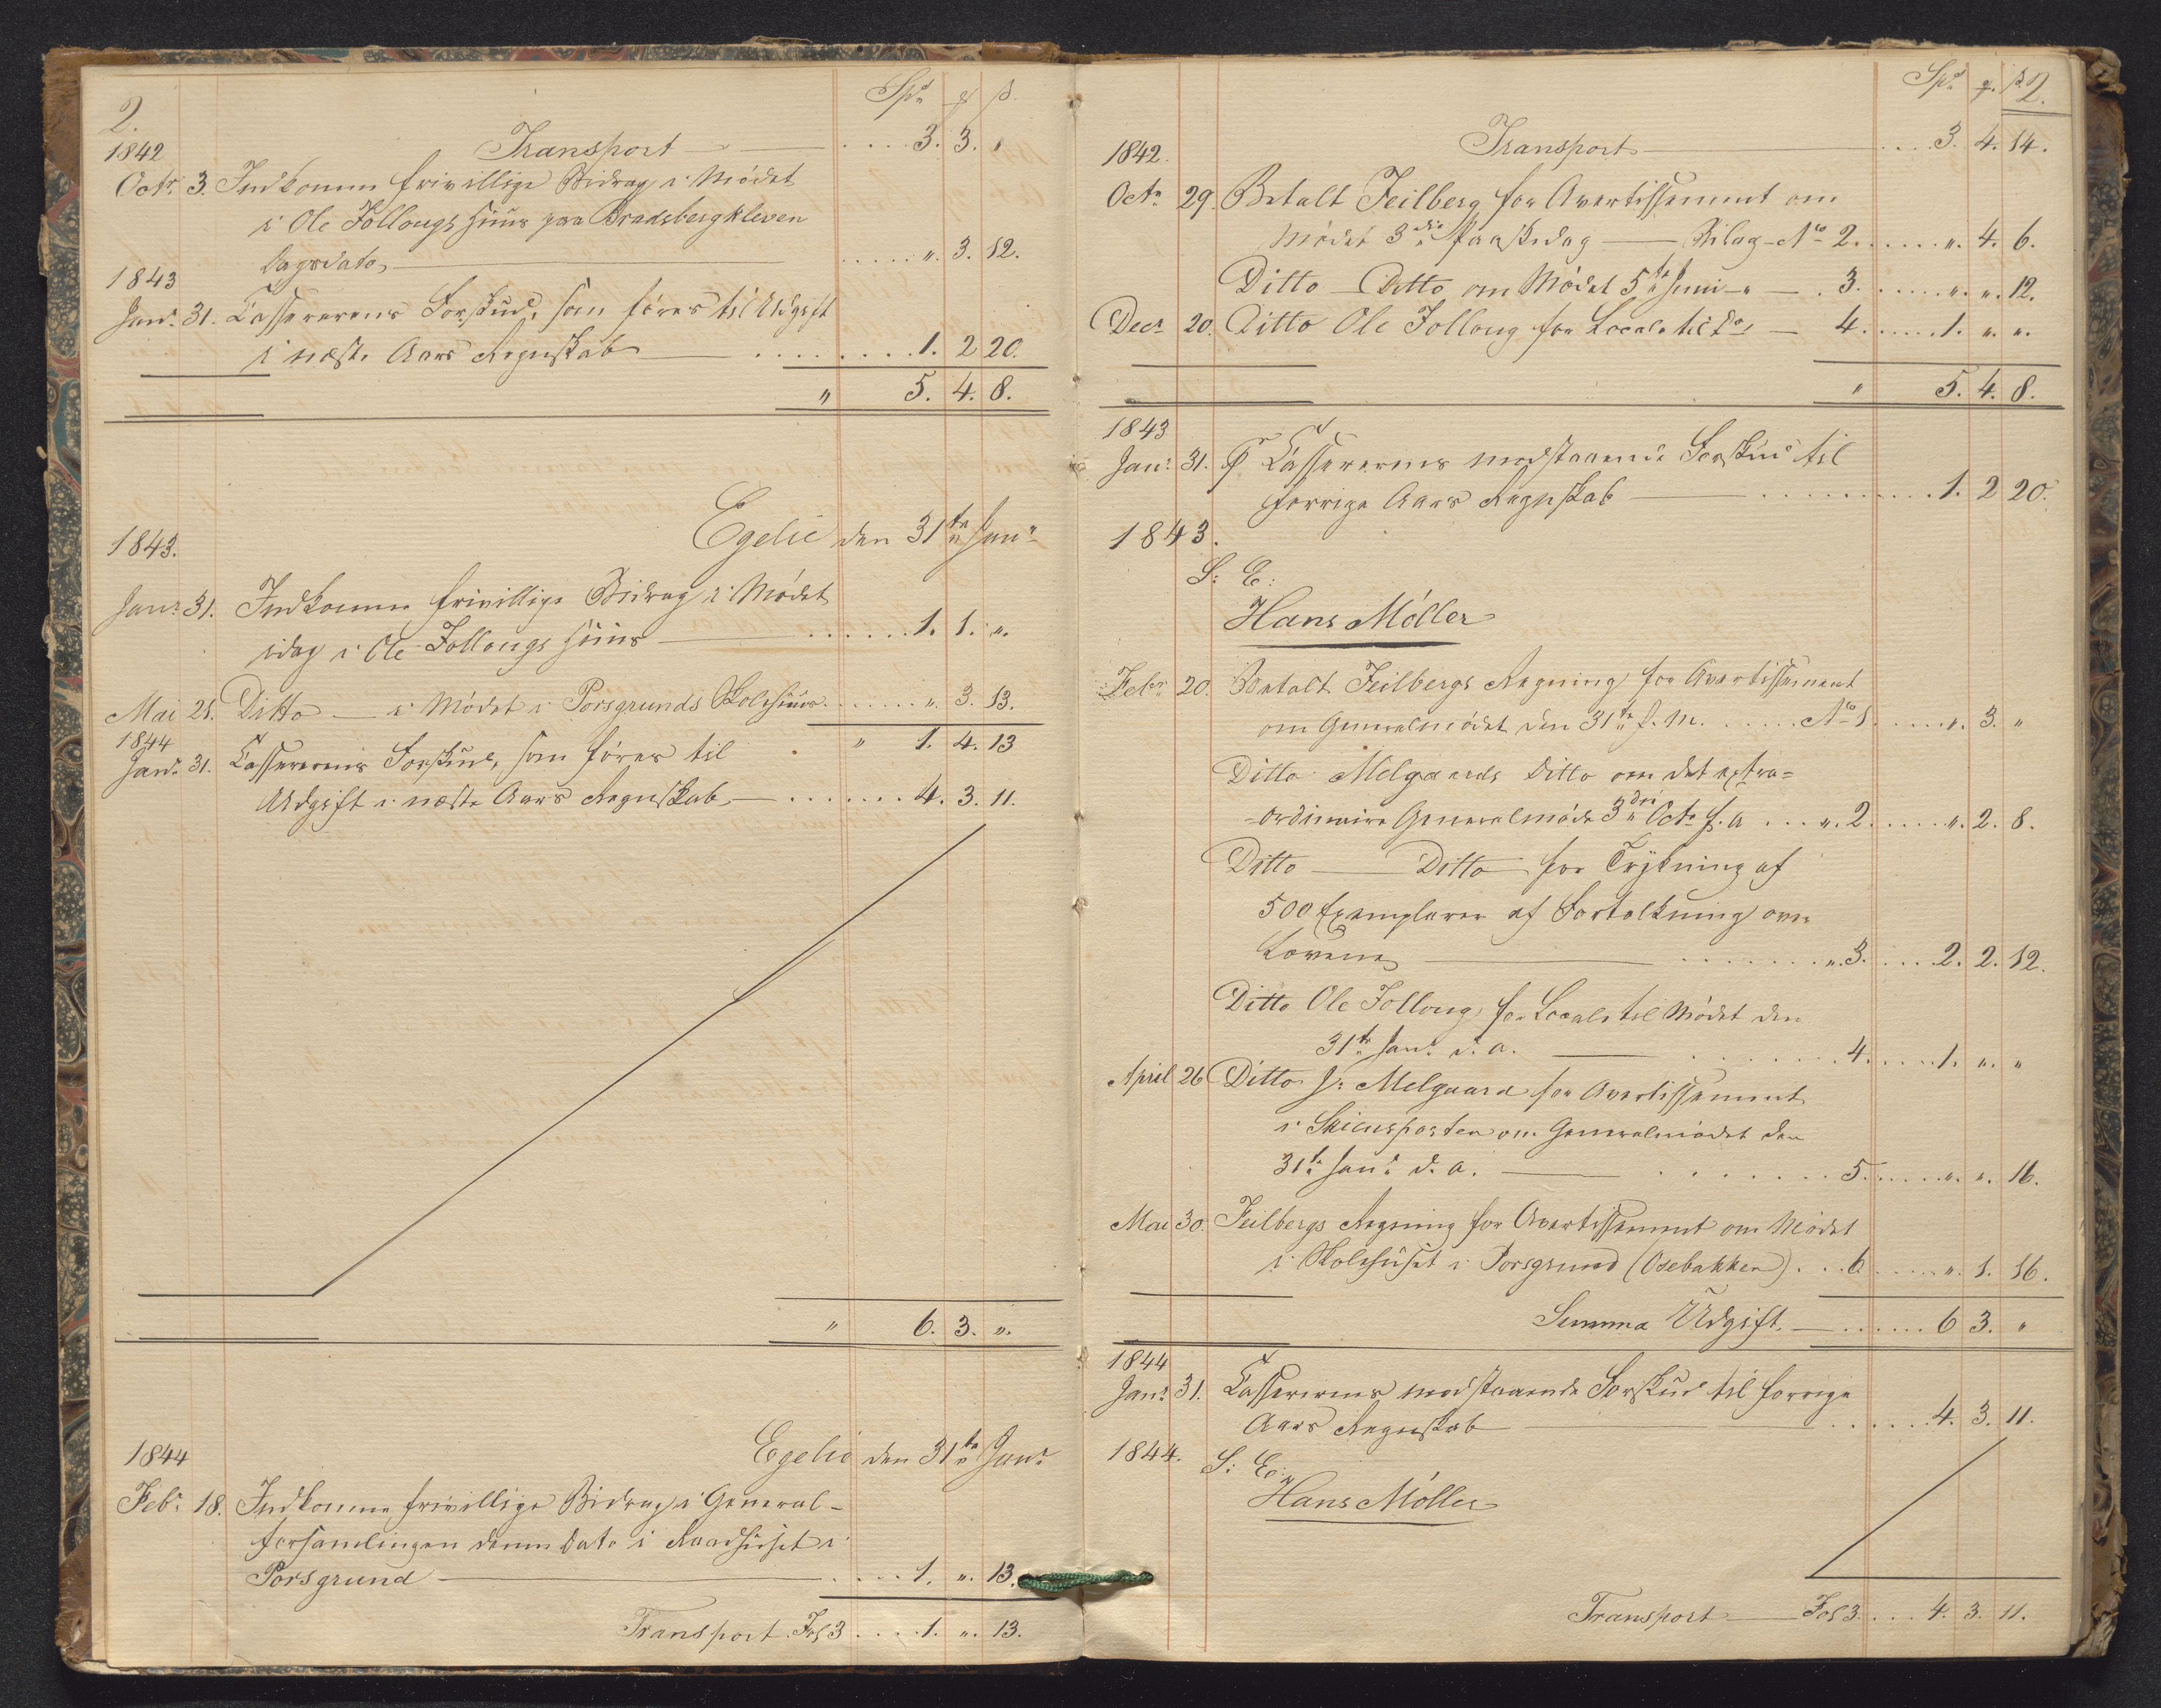 2. Spd ß.
Transport 3. 3. "
1842
Octr. 3. Indkomne frivillige Bidrag i Mødet
i Ole Follougs Huus paa Bradsbergkleven
dagsdato " 3. 12.
1843
Janr. 31. Cassererens Forskud, som føres til Udgift
i næste Aars Regnskab 1. 2 20.
" 5. 4. 8.
1843. Egelie den 31te Janr
Janr. 31. Indkomne frivillige Bidrag i Mødet
idag i Ole Follougs Huus 1. 1. "
Mai 21. Ditto — i Mødet i Porsgrunds Skolehuus " 3. 13.
" 1. 4. 13
1844
Janr. 31. Cassererens Forskud, som føres til
Udgift i næste Aars Regnskab 4. 3. 11.
" 6. 3. "
Egelie den 31te Janr
1844
Febr. 18. Indkomne frivillige Bidrag i General-
forsamlingen denne Dato i Raadhuset i
Porsgrund 1. " 13.
Transport Fol 3 1. " 13.
Spd ß 2.
Transport 3. 4. 14.
1842.
Octr 29. Betalt Feilberg for Avertissement om
Mødet 3die Paaskedag — Bilag No 2. " 4. 6.
Ditto — Ditto om Mødet 5te Juni " — 3. " " 12.
Decr 20. Ditto Ole Folloug for Locale til Do — 4. 1. " "
" 5. 4. 8.
1843
Janr. 31. Cassererens modstaaende Forskud til
forrige Aars Regnskab 1. 2 20.
1843.
S: E:
Hans Møller
Febr 20. Betalt Feilbergs Regning for Avertissement
om Generalmødet den 31te f. M. No 1. " 3. "
Ditto Melgaards Ditto om det extra=
=ordinaire Generalmøde 3die Octr f. a " 2. " 2. 8.
Ditto — Ditto for Trykning af
500 Exemplarer af Fortolkning over
Lovene " 3. 2. 2. 12.
Ditto Ole Folloug for Locale til Mødet den
31te Janr. d. a. 4. 1. " "
April 26 Ditto J: Melgaard for Avertissement
i Skiensposten om Generalmødet den
31te Janr. d. a. 5. " " 16.
Mai 30. Feilbergs Regning for Avertissement om Mødet
i Skolehuset i Porsgrund (Osebakken) 6 " 1. 16.
Summa Udgift 6 3. "
1844
Janr. 31. Cassererens modstaaende Forskud til forrige
Aars Regnskab 4. 3. 11.
1844. S: E:
Hans Møller
Transport Fol 3. 4. 3. 11.